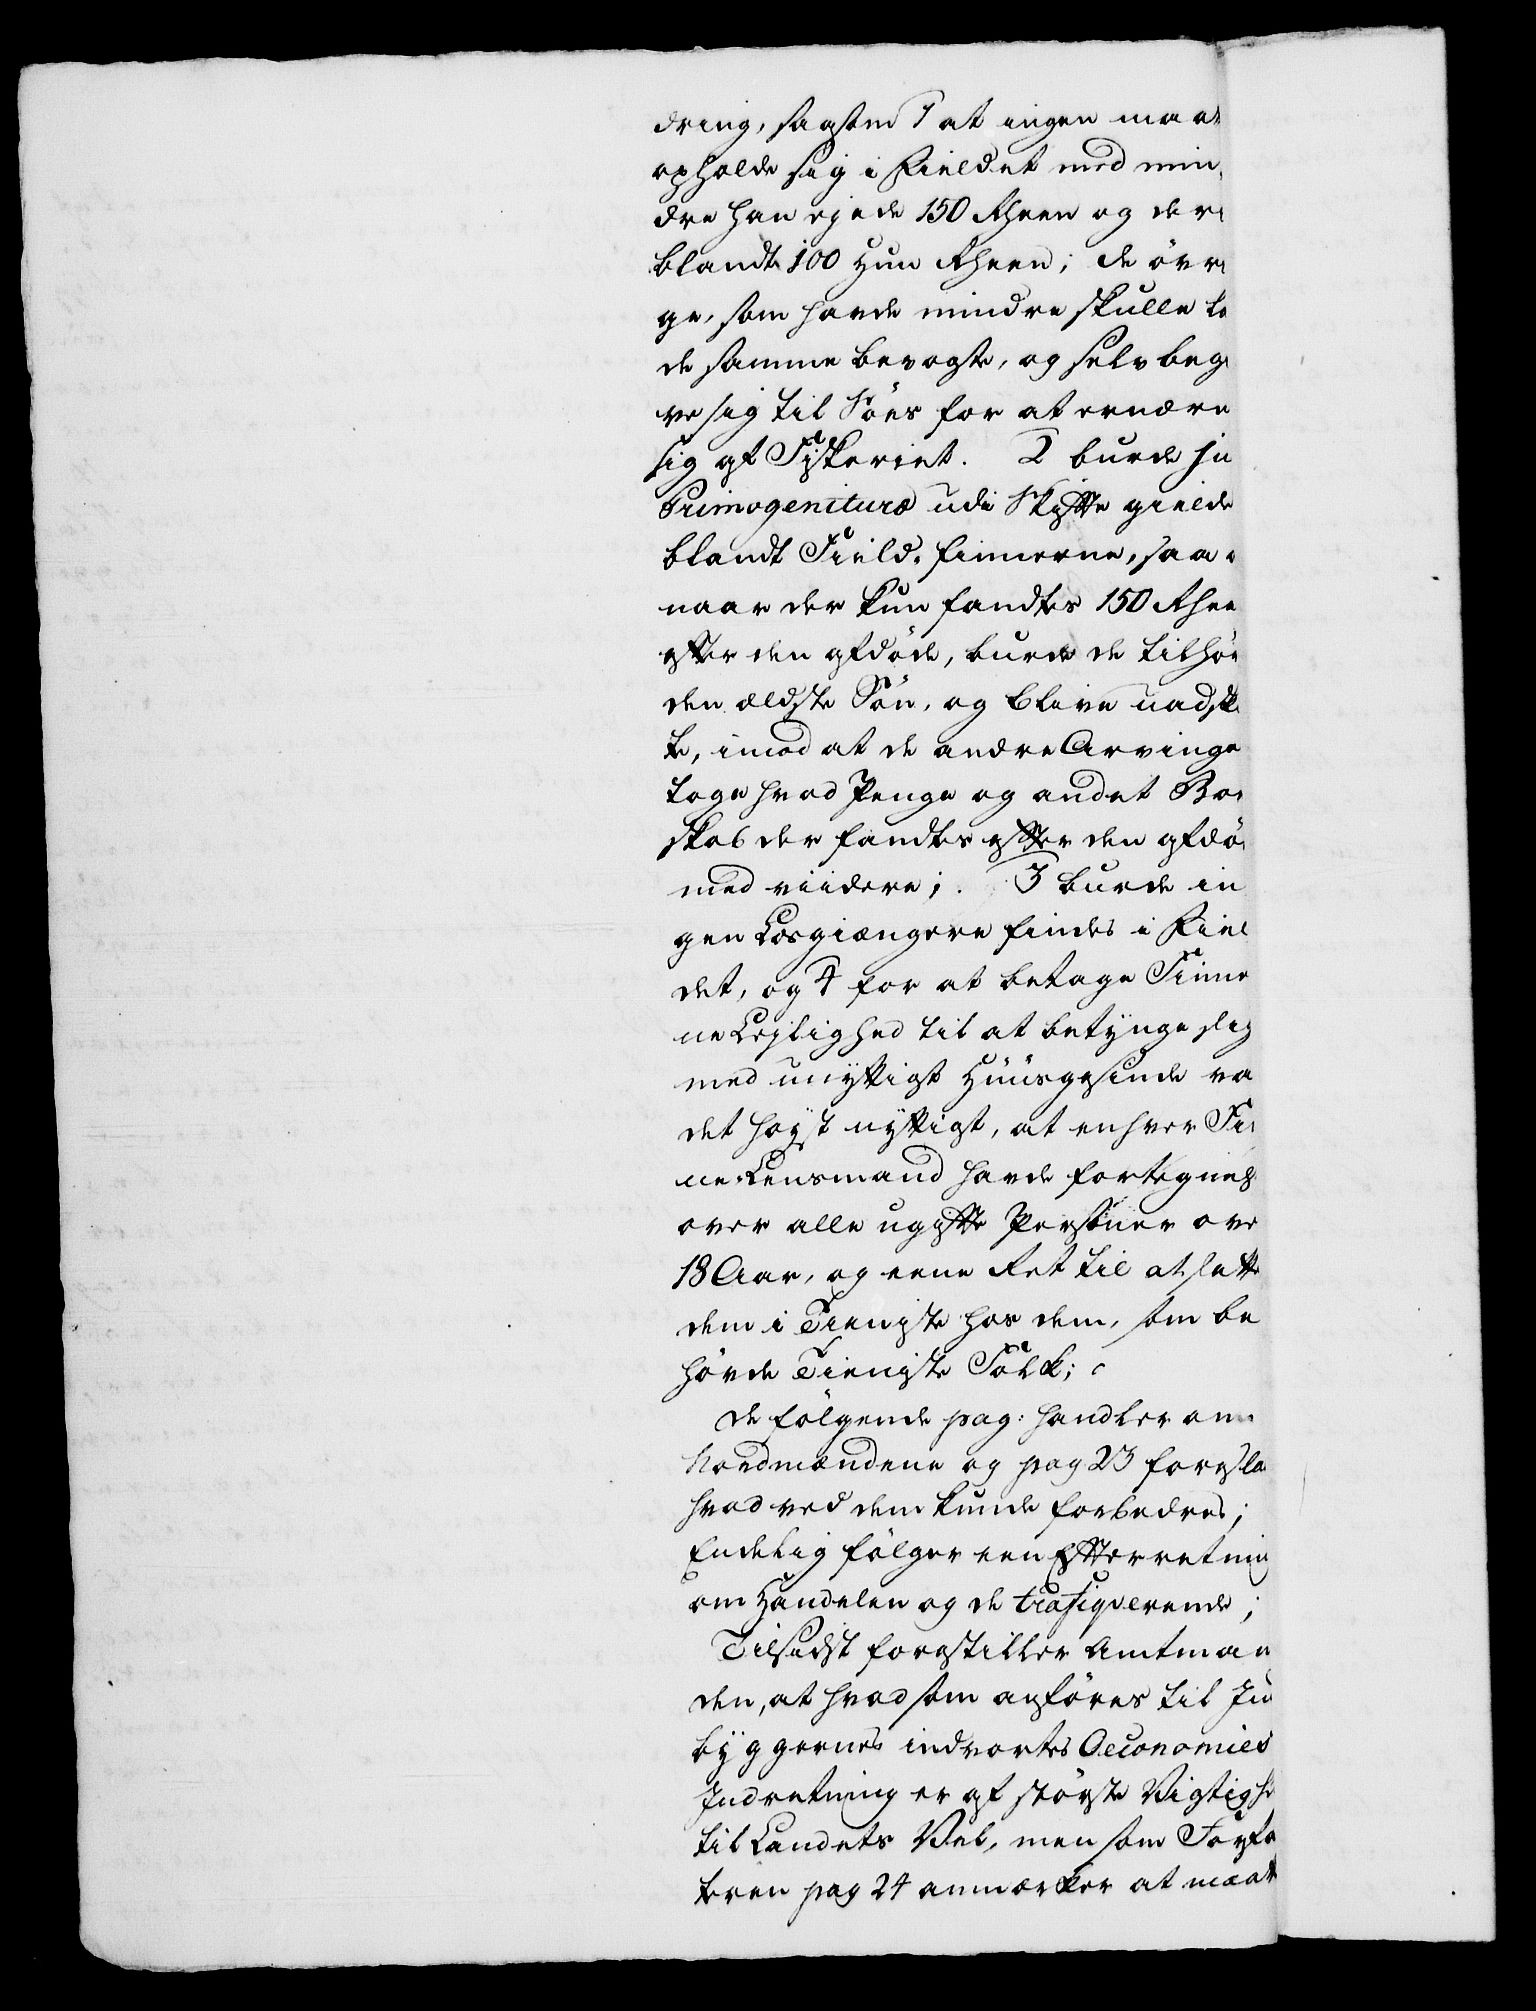 dring, saasom 1 at ingen maat
opholde sig i Fieldet med min,
dre han ejede 150 Rheen og der
blandt 100 Hun Rheen; de övri
ge, som havde mindre skulle la
de samme bevogte, og selv beg
ve sig til Söes for at ernære
sig af Fiskeriet. 2 burde Ju
Primogenituræ udi Skifte gielde
blandt Field-finnerne, saa
naar der kun fandtes 150 Rhee
efter den afdöde, burde de tilhör
den ældste Sön, og blive uadski
te, imod at de andre Arvinge
toge hvad Penge og andet Boe
skab der fandtes efter den afdö
med viidere; 3 burde in
gen Losgiængere findes i Fiel
det, og 4 for at betage Finne
ne Lejlighed til at betynge sig
med unyttigt Huusgesinde va
det høyst nyttigt, at enhver Fi
ne-Lensmand havde fortegnels
over alle ugifte Personer ove
18 Aar, og eene Ret til at sætte
dem i Tieniste hos dem, som be
hövde Tieniste Folk;
De fölgende pag: handler om
Nordmændene og pag 23 foresla
hvad ved dem kunde forbedres;
Endelig fölger een Efterretning
om Handelen og de trafiqverende;
Tilsidst forestiller Amtman
den, at hvad som anföres til In
byggernes indvortes Oeconomies
Indretning er af störste Vigtighe
til Landets Vel, men som Forfa
teren pag 24 anmærker at maat